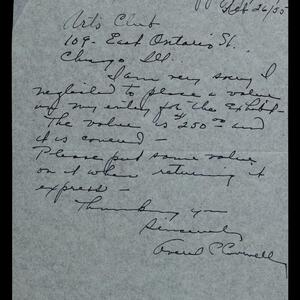 Feb 26/35
Arts Club
109 - East Ontario St.
Chicago Ill.
I am very sorry I
neglected to place a value
on my entry for the Exhibit -
The value is $250.00 and
it is covered -
Please put same value
on it when returning it
express -
Thanking you
Sincerely